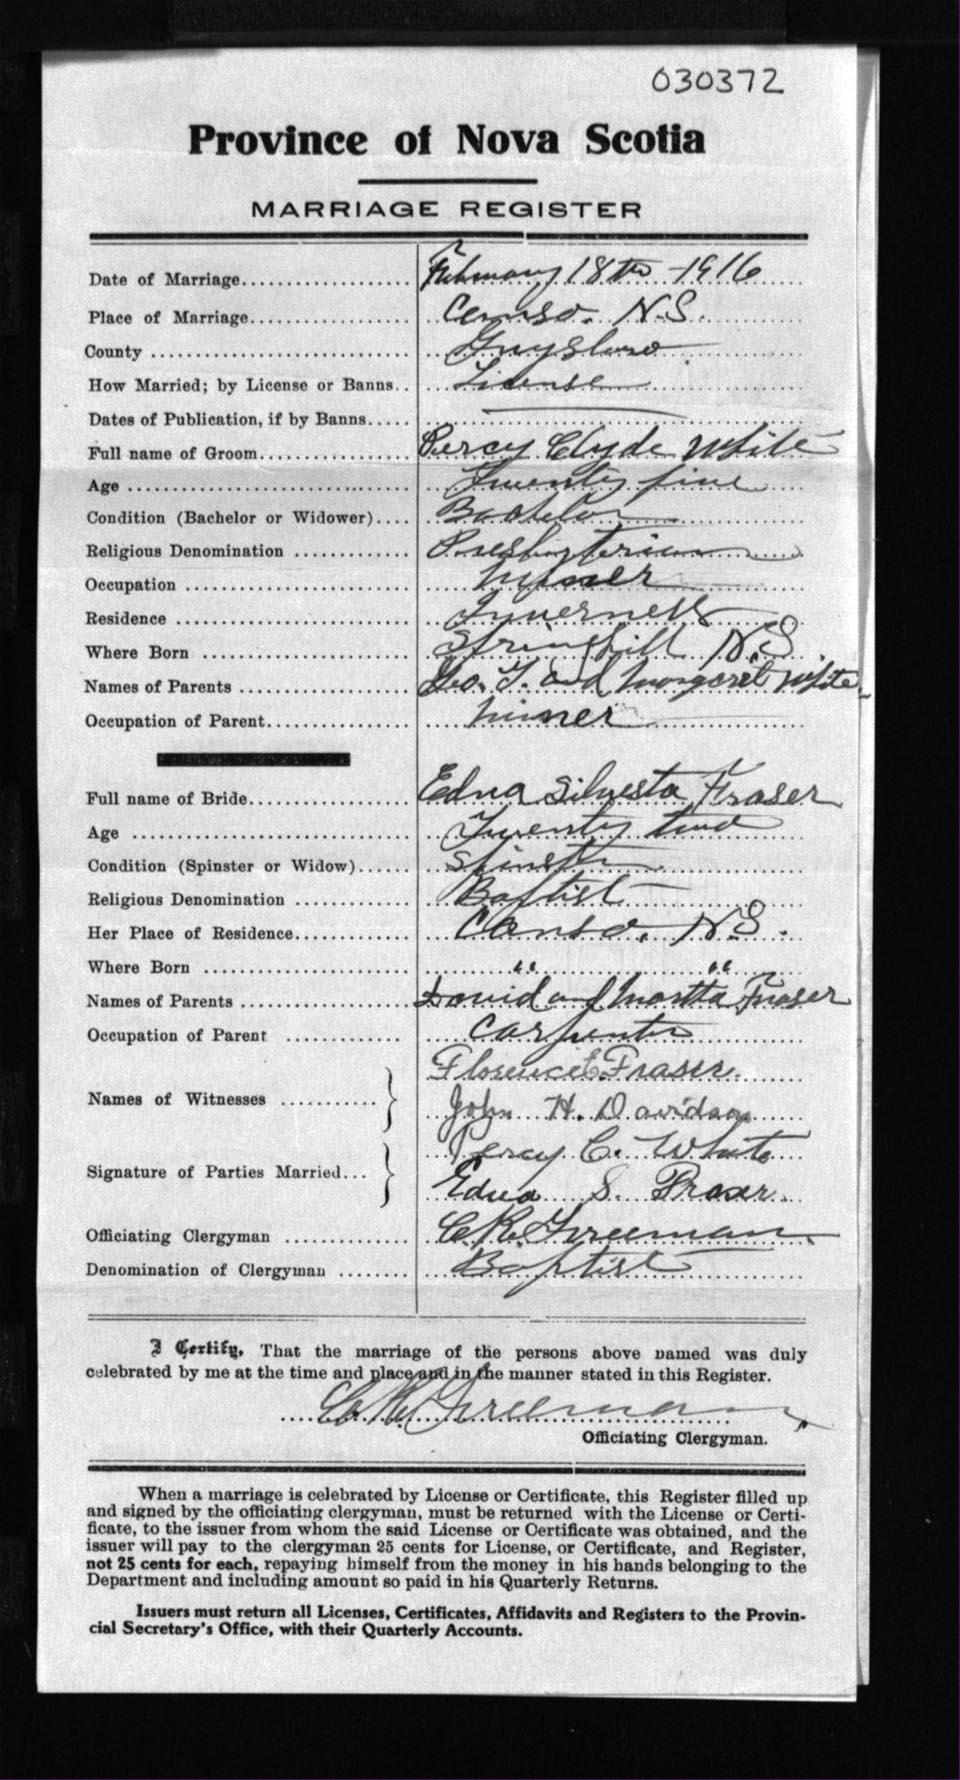 030372
Province of Nova Scotia
MARRIAGE REGISTER
Date of Marriage................... February 18th 1916
Place of Marriage................... Canso. N.S.
County ............................... Guysboro
How Married; by License or Banns.. License
Dates of Publication, if by Banns.....
Full name of Groom.................. Percy Clyde White
Age .................................. Twenty five
Condition (Bachelor or Widower).... Bachelor
Religious Denomination ............. Presbyterian
Occupation .......................... Minner
Residence ........................... Inverness
Where Born ......................... Springhill N.S
Names of Parents .................... Geo. T. and Margaret White
Occupation of Parent................. Minner
Full name of Bride................... Edna Silvesta Fraser
Age .................................. Twenty two
Condition (Spinster or Widow)...... Spinster
Religious Denomination ............. Baptist
Her Place of Residence.............. Canso. N.S.
Where Born ......................... " "
Names of Parents .................... David and Martha Fraser
Occupation of Parent ............... Carpenter
Florence E. Fraser.
Names of Witnesses ...........
John H. Davidson
Percy C. White
Signature of Parties Married...
Edna S. Fraser.
Officiating Clergyman ............... C. R. Freeman
Denomination of Clergyman ........ Baptist
I Certify, That the marriage of the persons above named was duly
celebrated by me at the time and place and in the manner stated in this Register.
C. R. Freeman
Officiating Clergyman.
When a marriage is celebrated by License or Certificate, this Register filled up
and signed by the officiating clergyman, must be returned with the License or Certi-
ficate, to the issuer from whom the said License or Certificate was obtained, and the
issuer will pay to the clergyman 25 cents for License, or Certificate, and Register,
not 25 cents for each, repaying himself from the money in his hands belonging to the
Department and including amount so paid in his Quarterly Returns.
Issuers must return all Licenses, Certificates, Affidavits and Registers to the Provin-
cial Secretary's Office, with their Quarterly Accounts.